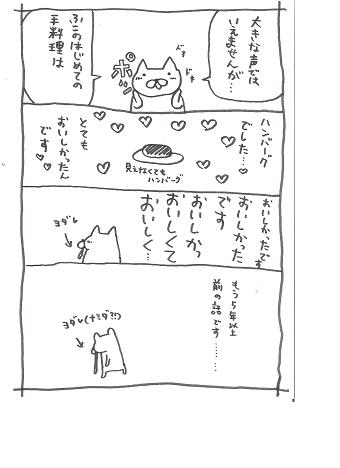 大きな声では
いえませんが…
ドキ
ドキ
ポッ
ふこのはじめての
手料理は
ハンバーグ
でした…
見えなくても
ハンバーグ
とても
おいしかったん
です
おいしかったです
おいしかった
です
おいしかっ
おいしくて
おいしく…
ヨダレ
もう5年以上
前の話です………
ヨダレ(ナミダ?!)